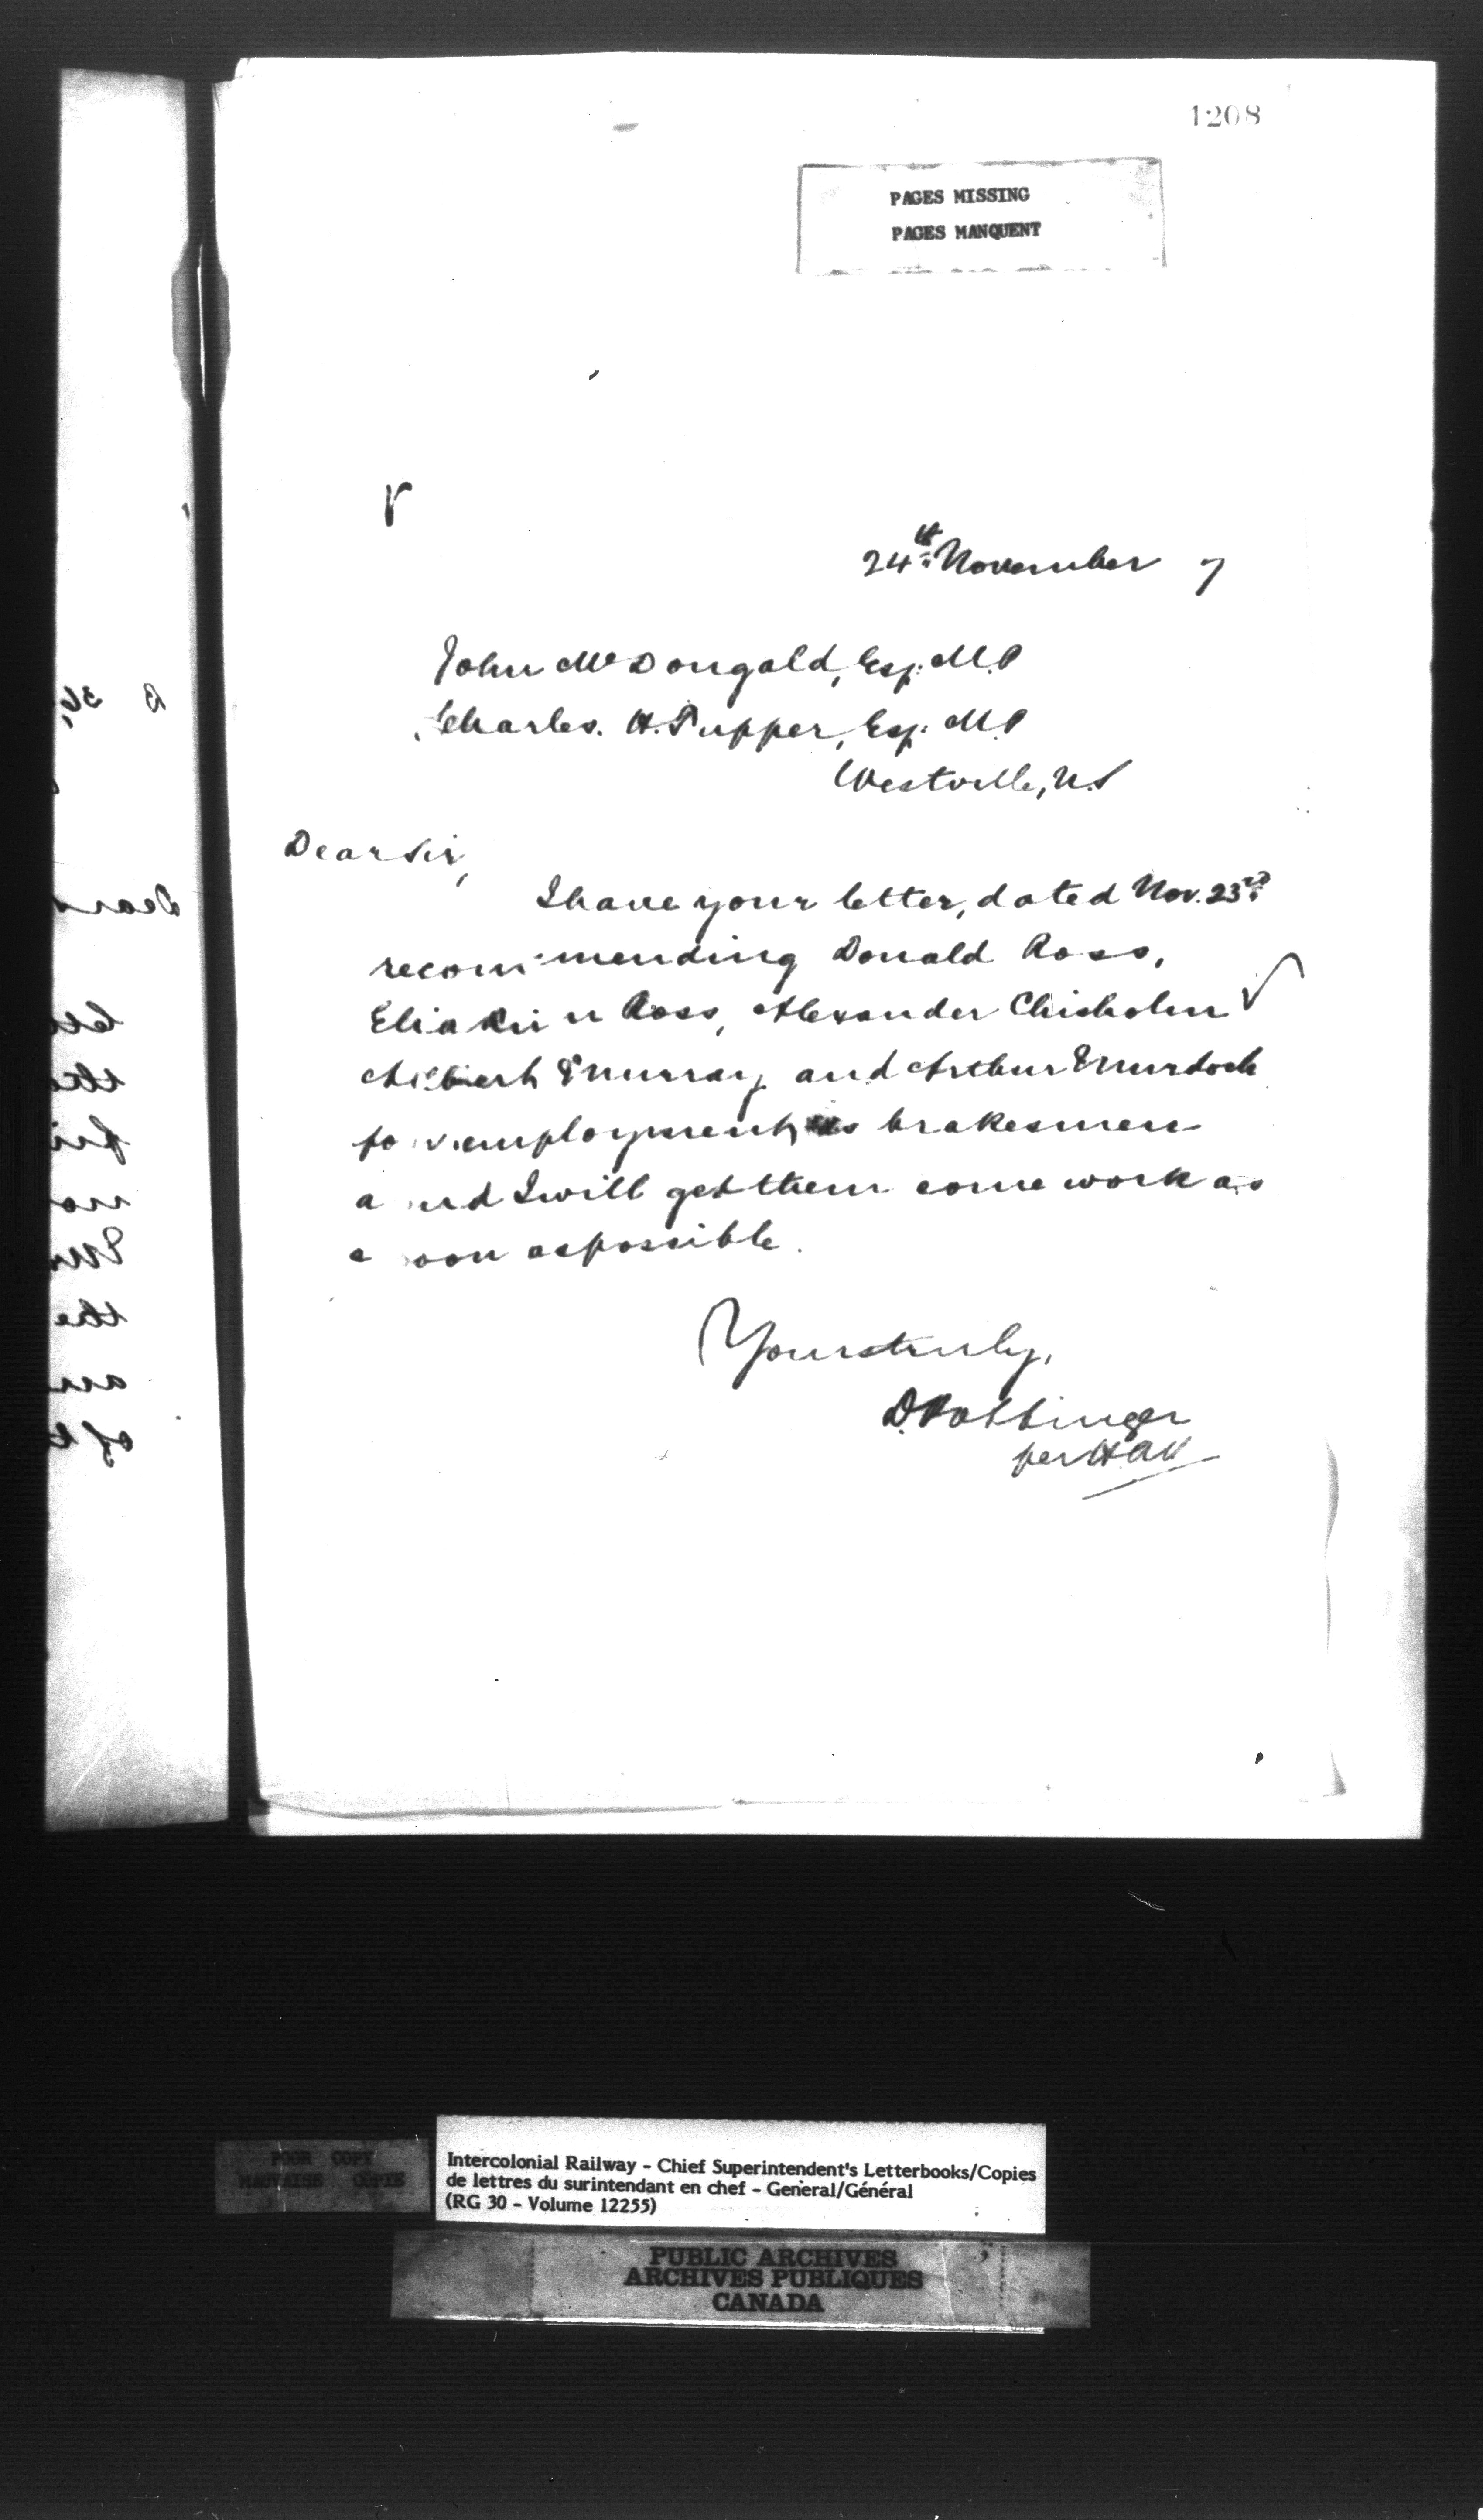 1208
PAGES MISSING
PAGES MANQUENT
24th November 7
John McDougald, Esq. M.P
Charles. H. Tupper, Esq. M.P
Westville, N.S
Dear Sir,
I have your letter, dated Nov. 23rd
recommending Donald Ross,
Eliakim Ross, Alexander Chisholm
Murray and Arthur Murdoch
for employment, as brakesmen
and I will get them come work as
soon as possible.
Yours truly,
D. Pottinger
per
POOR COPY
MAUVAISE COPIE
Intercolonial Railway - Chief Superintendent's Letterbooks/Copies
de lettres du surintendant en chef - General/Général
(RG 30 - Volume 12255)
PUBLIC ARCHIVES
ARCHIVES PUBLIQUES
CANADA